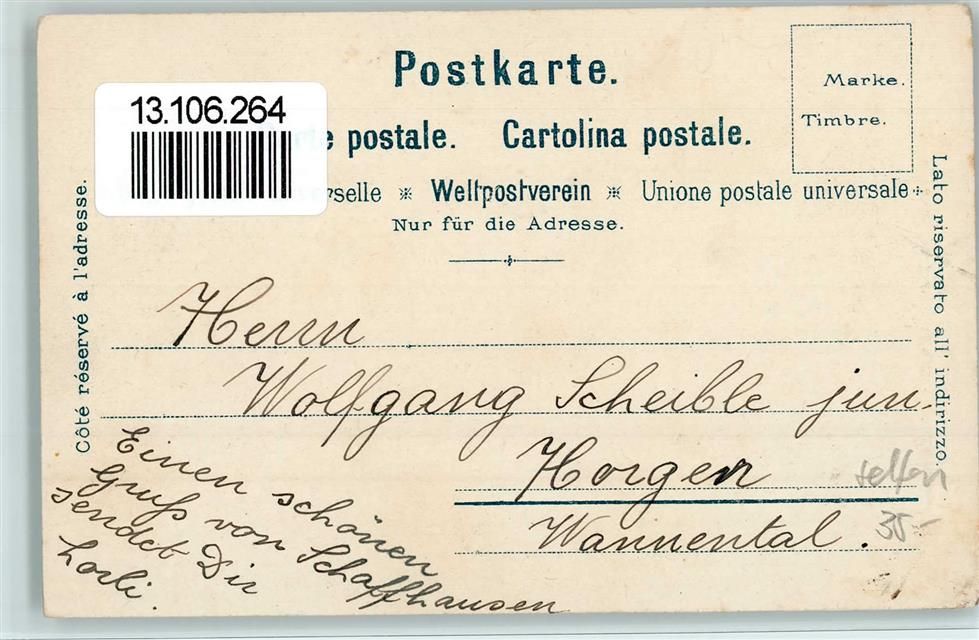 Postkarte.
Marke.
Timbre.
13.106.264
postale. Cartolina postale.
Weltpostverein ※ Unione postale universale
Nur für die Adresse.
Côté réservé à l'adresse.
Lato riservato all' indirizzo
Herrn
Wolfgang Scheible jun.
Horgen
Wannental.
selten
35-
Einen schönen
Gruß von Schaffhausen
sendet Dir
Lorli.